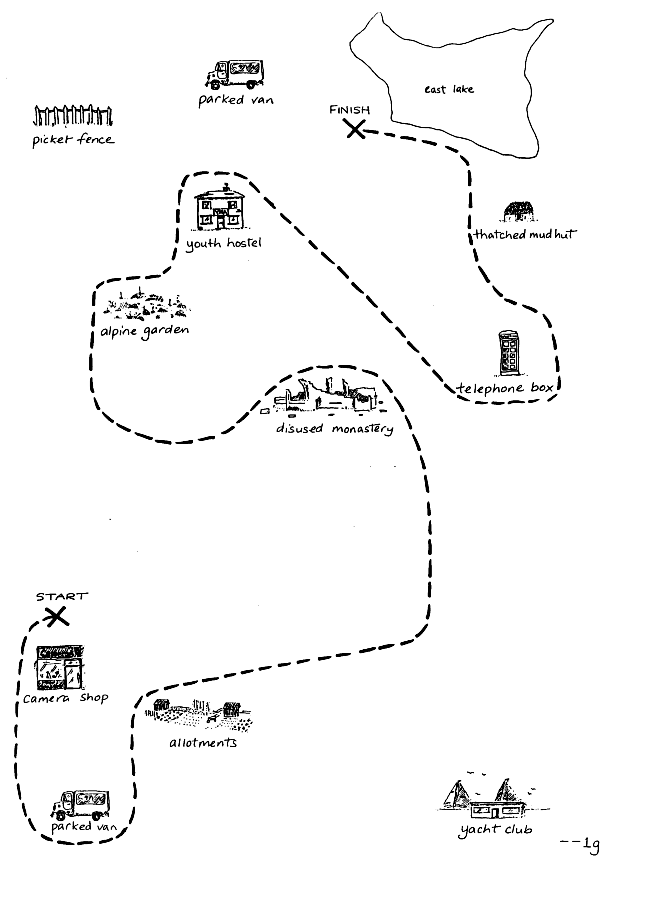 east lake
parked van
FINISH
picket fence
thatched mud hut
youth hostel
alpine garden
telephone box
disused monastery
START
camera shop
allotments
parked van
yacht club
--1g